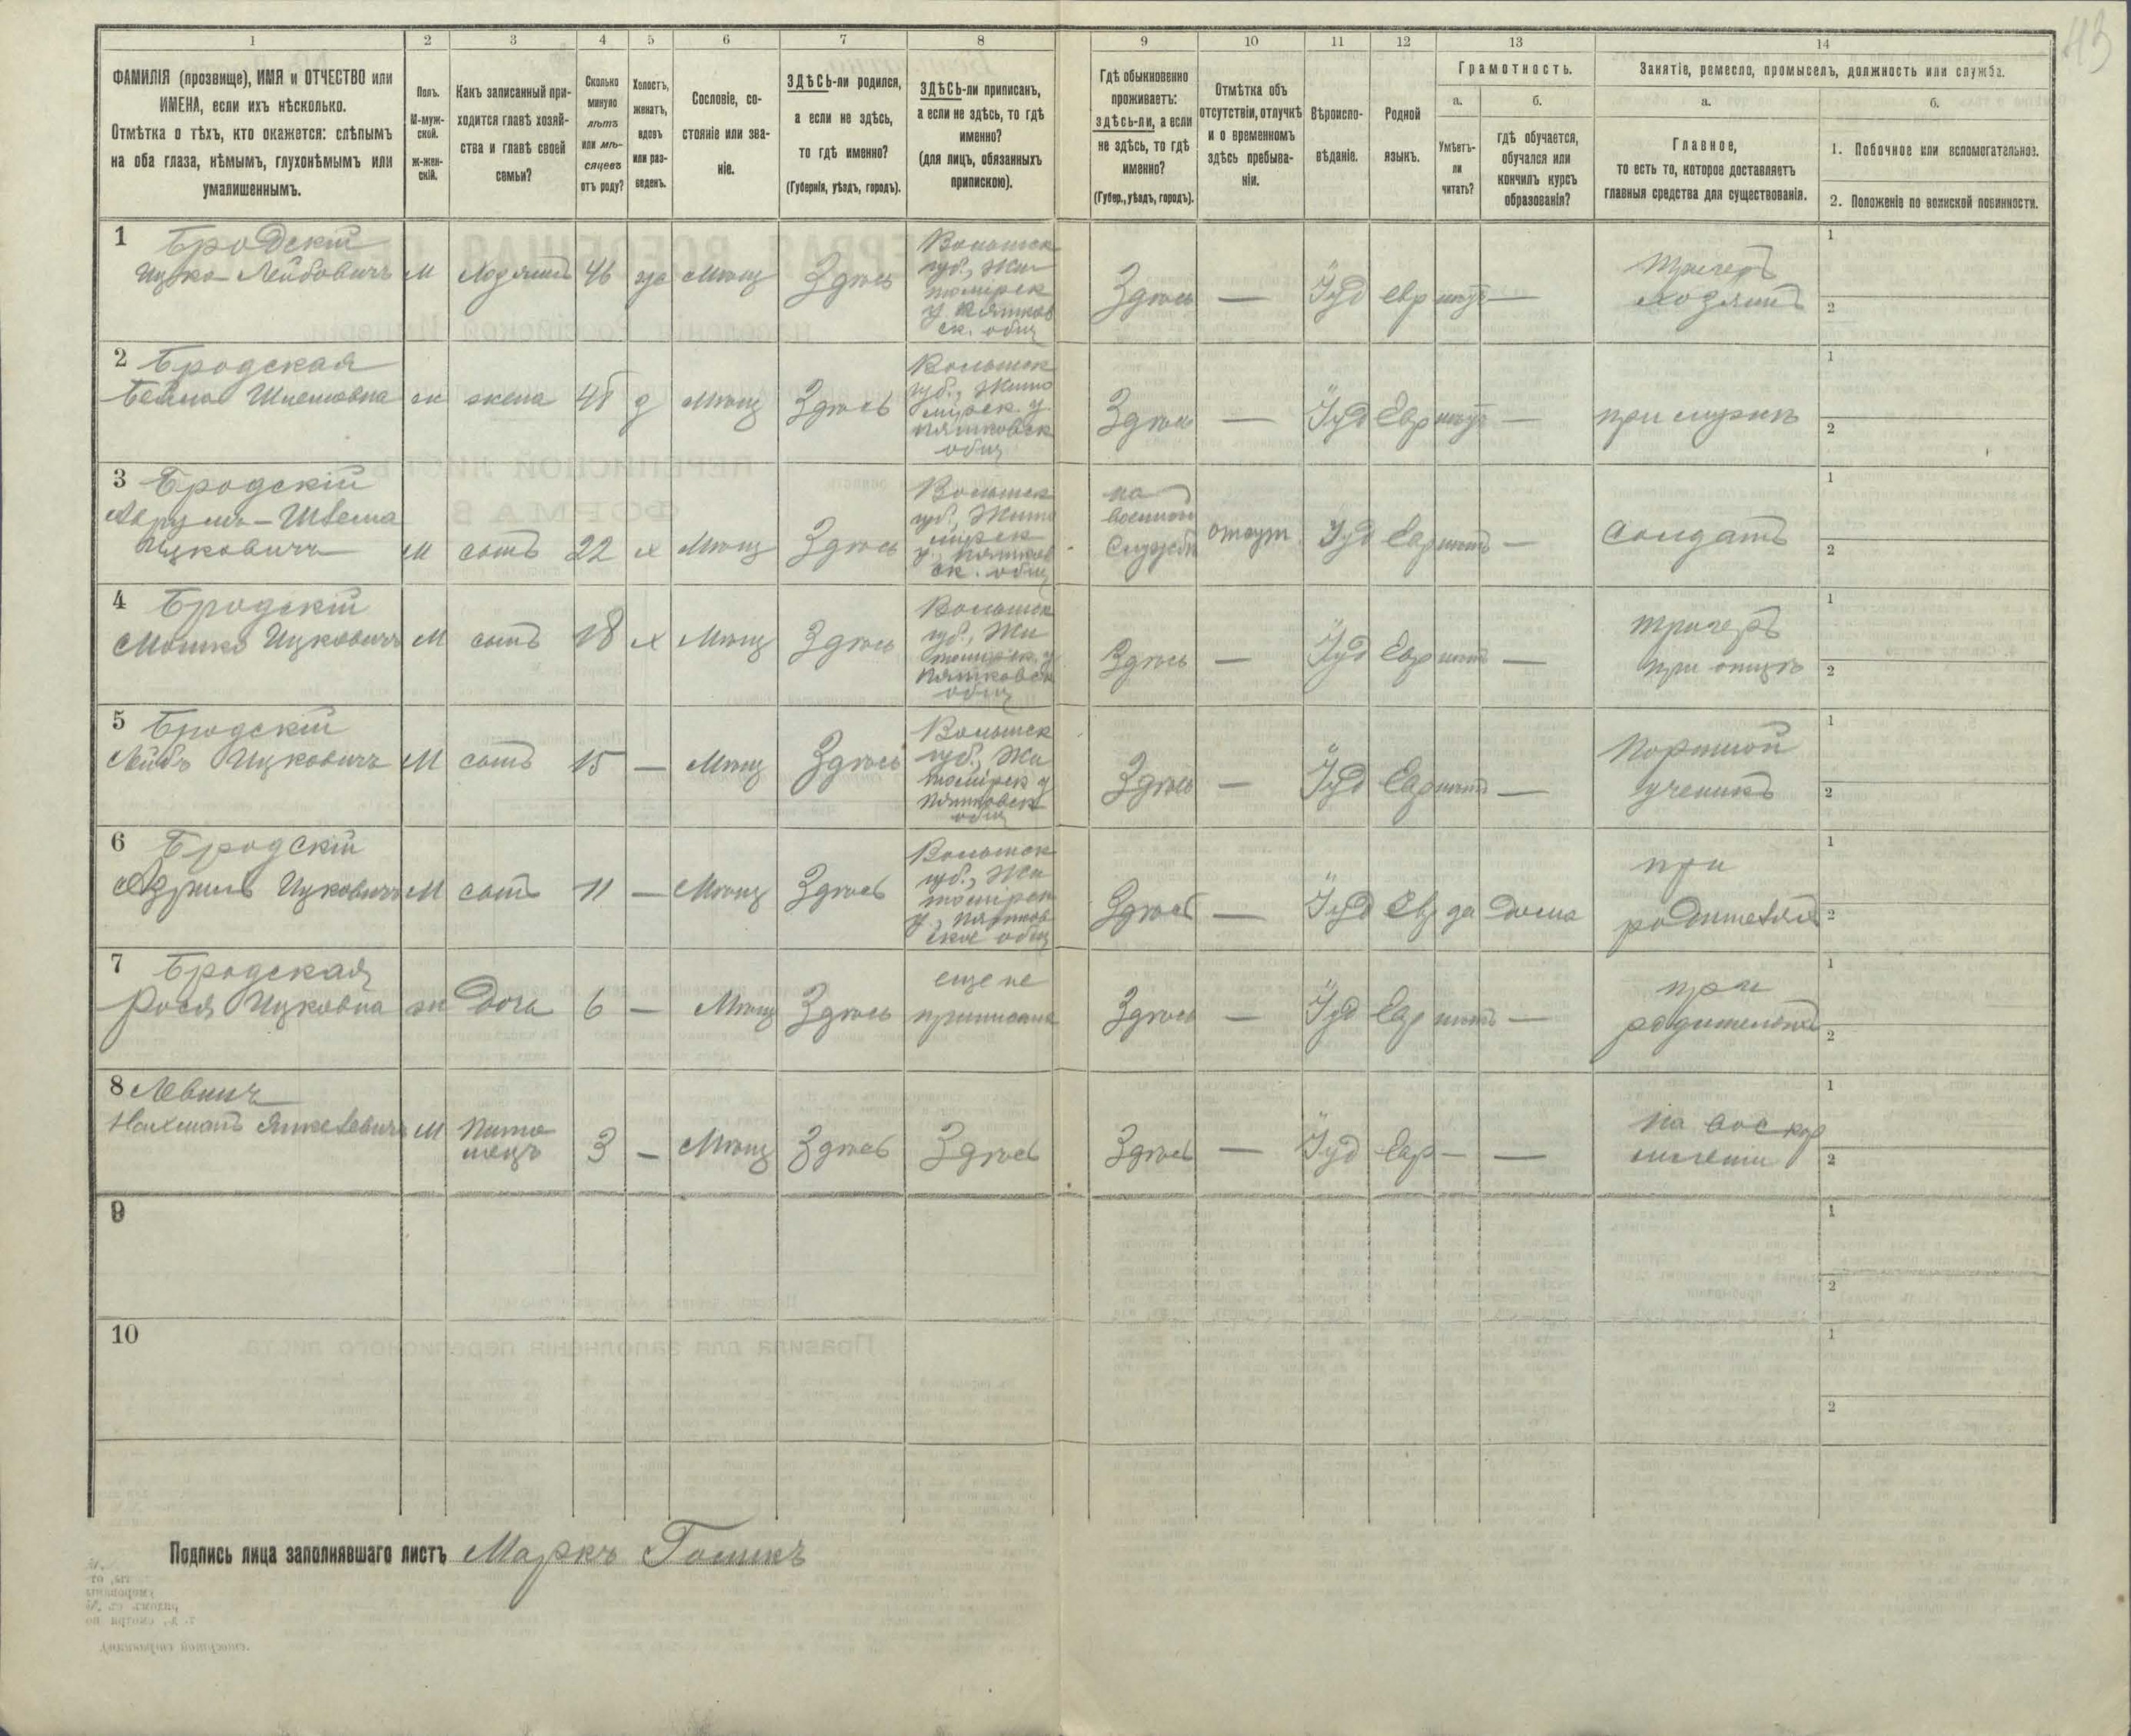 43
1 2 3 4 5 6 7 8 9 10 11 12 13 14
ФАМИЛІЯ (прозвище), ИМЯ и ОТЧЕСТВО или
ИМЕНА, если ихъ нѣсколько.
Отмѣтка о тѣхъ, кто окажется: слѣпымъ
на оба глаза, нѣмымъ, глухонѣмымъ или
умалишеннымъ.
Полъ.
М-муж-
ской.
ж-жен-
скій.
Какъ записанный при-
ходится главѣ хозяй-
ства и главѣ своей
семьи?
Сколько
минуло
лѣтъ
или мѣ-
сяцевъ
отъ роду?
Холостъ,
женатъ,
вдовъ
или раз-
веденъ.
Сословіе, со-
стояніе или зва-
ніе.
ЗДѢСЬ-ли родился,
а если не здѣсь,
то гдѣ именно?
(Губернія, уѣздъ, городъ).
ЗДѢСЬ-ли приписанъ,
а если не здѣсь, то гдѣ
именно?
(для лицъ, обязанныхъ
припискою).
Гдѣ обыкновенно
проживаетъ:
здѣсь-ли, а если
не здѣсь, то гдѣ
именно?
(Губер., уѣздъ, городъ).
Отмѣтка объ
отсутствіи, отлучкѣ
и о временномъ
здѣсь пребыва-
ніи.
Вѣроиспо-
вѣданіе.
Родной
языкъ.
Грамотность.
а.
Умѣетъ-
ли
читать?
б.
гдѣ обучается,
обучался или
кончилъ курсъ
образованія?
Занятіе, ремесло, промыселъ, должность или служба.
а.
Главное,
то есть то, которое доставляетъ
главныя средства для существованія.
б.
1. Побочное или вспомогательное.
2. Положеніе по воинской повинности.
1 Бродскій
Ицко Лейбовичъ М Хозяинъ 46 Мѣщ Здѣсь
Волынск
губ., Жи
томірск
у. Пятков
ск. общ
Здѣсь — Іуд евр —
хозяинъ
1
2
2 Бродская
Шлемовна ж жена Мѣщ Здѣсь
Волынск
губ., Жито
мірск. у.
Пятковск
общ
Здѣсь — Іуд Евр —
при мужѣ
1
2
3 Бродскій
Аврумъ-Шлема
Ицковичъ М сынъ 22 х Мѣщ Здѣсь
Волынск
губ., Жито
мірск
у., Пятков
ск. общ
на
военной
службѣ
отсут. Іуд Евр нѣтъ —
Солдатъ
1
2
4 Бродскій
Мошко Ицковичъ М сынъ 18 х Мѣщ Здѣсь
Волынск
губ., Жи
томірск. у
Пятковск
общ
Здѣсь — Іуд Евр нѣтъ —
при отцѣ
1
2
5 Бродскій
Лейбъ Ицковичъ М сынъ 15 — Мѣщ Здѣсь
Волынск
губ., Жи
томірск у
Пятковск
общ
Здѣсь — Іуд Евр нѣтъ —
Портной
ученикъ
1
2
6 Бродскій
Ицковичъ М сынъ 11 — Мѣщ Здѣсь
Волынск
губ., Жи
томірск
у., Пятков
ское общ
Здѣсь — Іуд Евр да дома
при
родителяхъ
1
2
7 Бродская
Рося Ицковна ж дочь 6 — Мѣщ Здѣсь
еще не
приписана
Здѣсь — Іуд Евр нѣтъ —
при
родителяхъ
1
2
8 Левинъ
Нахманъ Янкелевичъ М
Пито
мецъ
3 — Мѣщ Здѣсь Здѣсь
Здѣсь — Іуд Евр — —
на воскор
мленіи
1
2
9
1
2
10
1
2
Подпись лица заполнявшаго листъ Маркъ